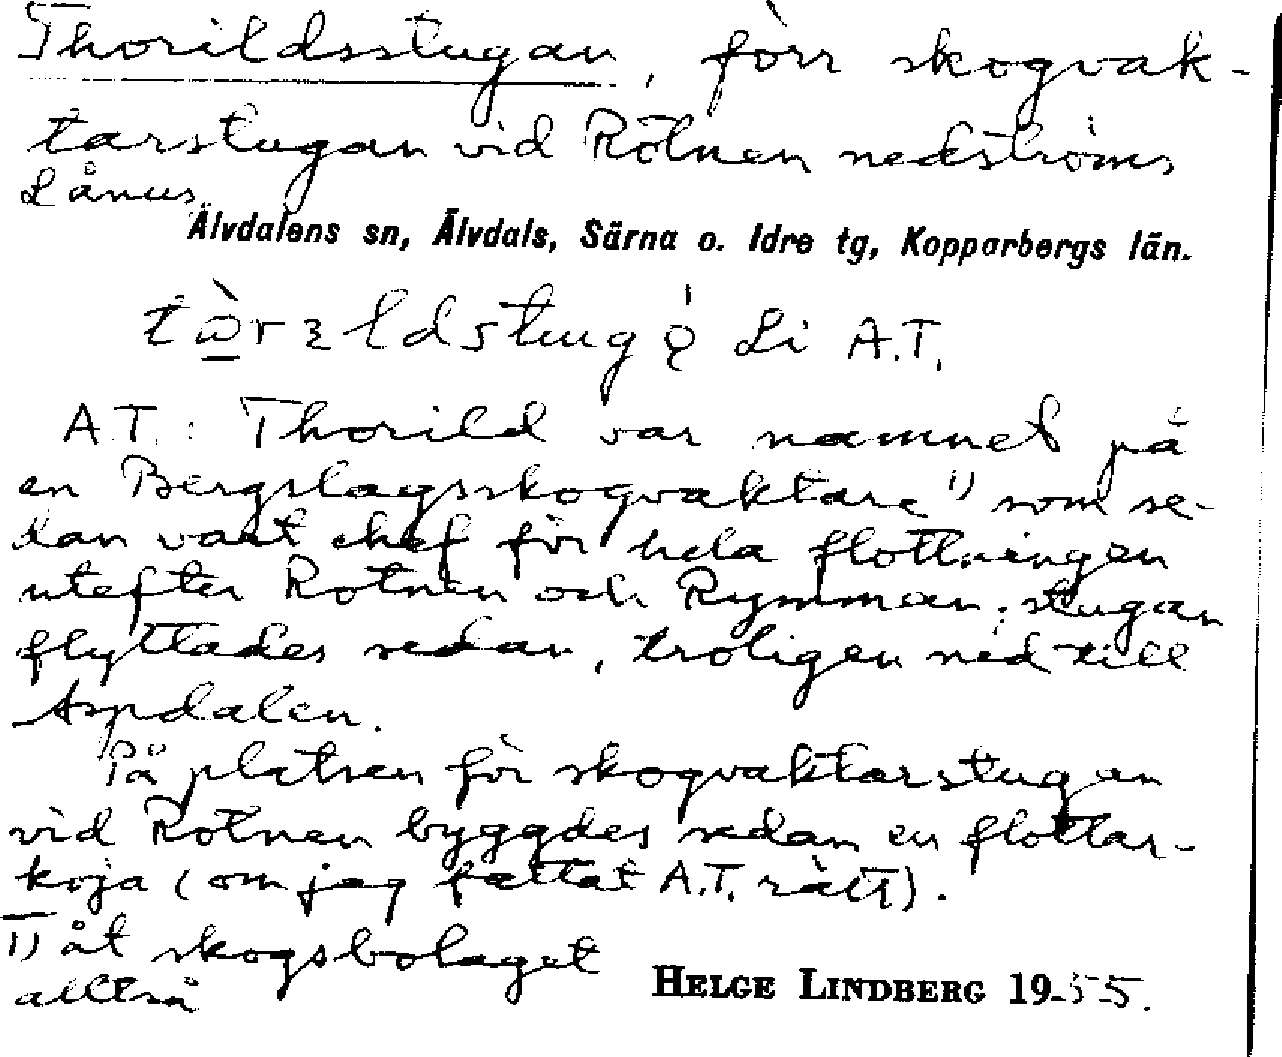 Thorildsstugan, förr skogvak-
tarstugan vid Rötnen nedströms
Lånus
Älvdalens sn, Älvdals, Särna o. Idre tg, Kopparbergs län.
Li A.T.
A.T.: Thorild var namnet på
en Bergslagsskogvaktare 1) som se-
dan vart chef för hela flottningen
utefter Rotnen och Rymman; stugan
flyttades sedan, troligen ned till
Aspdalen.
På platsen för skogvaktarstugan
vid Rotnen byggdes sedan en flottar-
koja (om jag fattat A.T. rätt).
1) åt skogsbolaget
alltså
HELGE LINDBERG 1955.